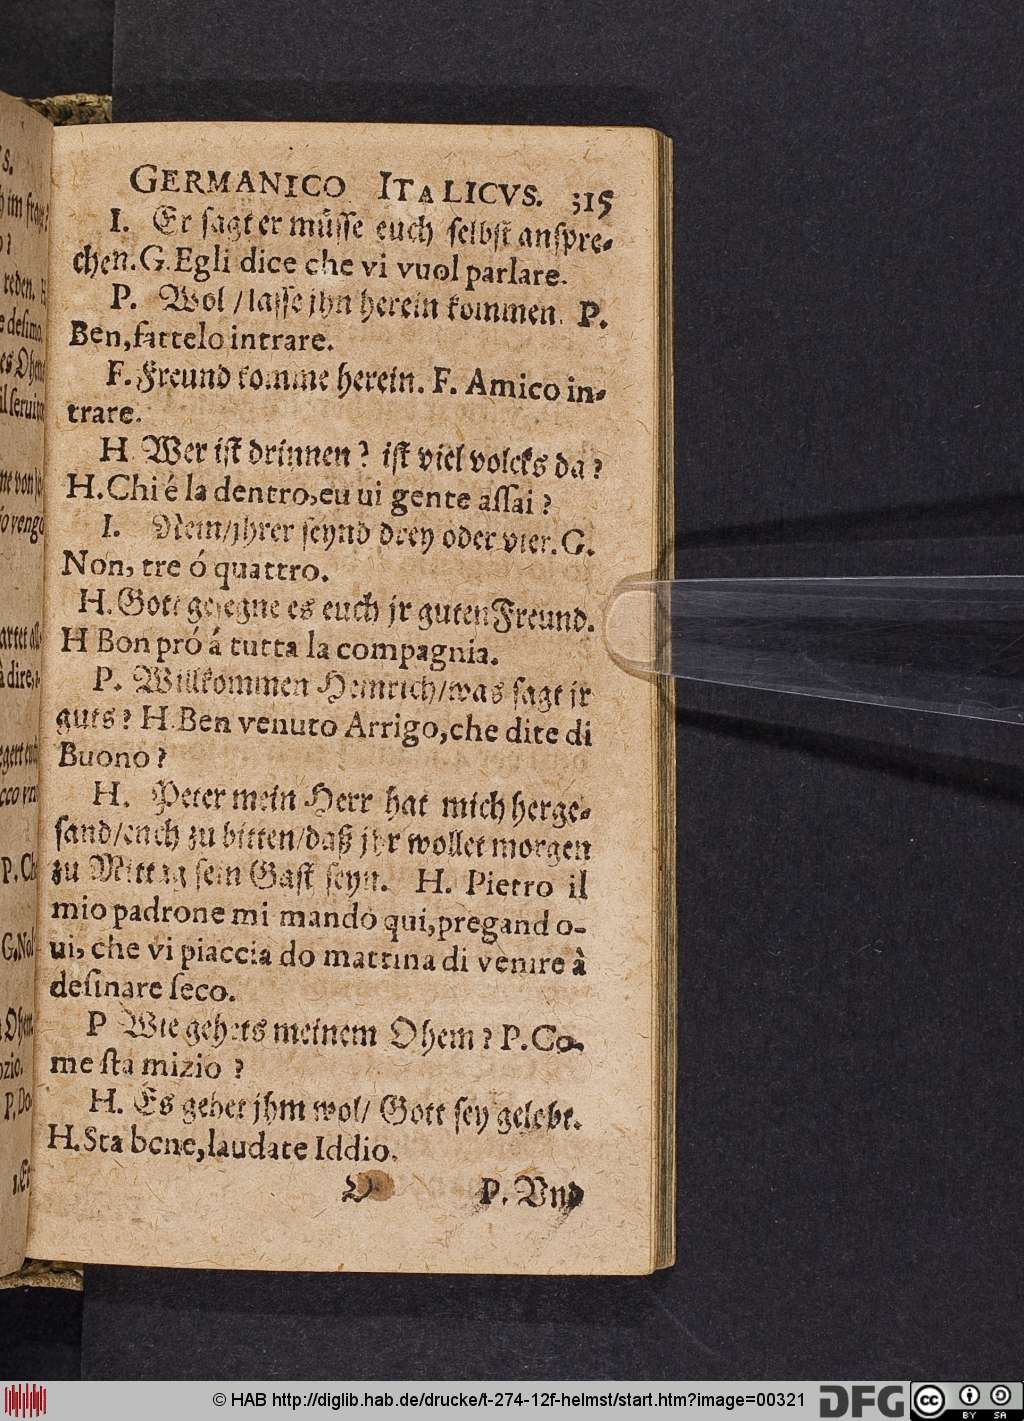 GERMANICO ITALICVS. 315
I. Er sagt er müsse euch selbst anspre-
chen. G. Egli dice che vi vuol parlare.
P. Wol / lasse jhn herein kommen. P.
Ben, fattelo intrare.
F. Freund komme herein. F. Amico in-
trare.
H Wer ist drinnen? ist viel volcks da?
H. Chi é la dentro, eu ui gente assai?
I. Nein/jhrer seynd drey oder vier. G.
Non, tre ó quattro.
H. Gott gesegne es euch jr guten Freund.
H Bon pró á tutta la compagnia.
P. Willkommen Heinrich/was sagt jr
guts? H. Ben venuto Arrigo, che dite di
Buono?
H. Peter mein Herr hat mich herge-
sand/euch zu bitten/daß jhr wollet morgen
zu Mittag sein Gast seyn. H. Pietro il
mio padrone mi mandó qui, pregand o-
ui, che vi piaccia do mattina di venire à
desinare seco.
P Wie gehets meinem Ohem? P. Co-
me sta mizio?
H. Es gehet jhm wol/ Gott sey gelobt.
H. Sta bene, laudate Iddio.
O P. Vnd
© HAB http://diglib.hab.de/drucke/t-274-12f-helmst/start.htm?image=00321 DFG cc BY SA